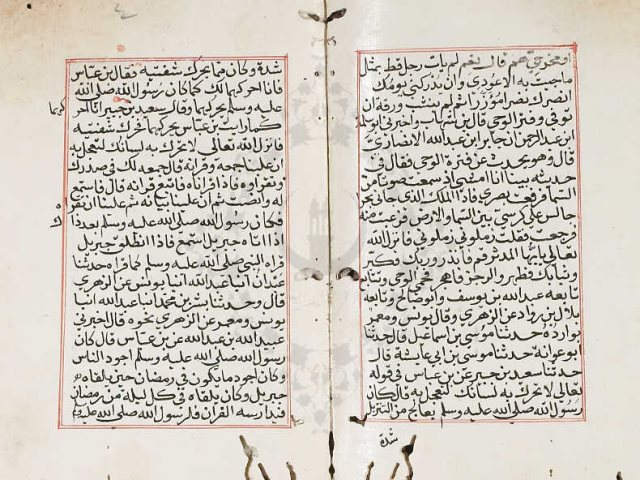 او مخرجيّ هم قال نعم لم يات رجل قط بمثل
ما جيت به الا عودي وان يدركني يومك
انصرك نصرا مؤزرا ثم لم ينشب ورقة ان
توفي وفتر الوحي قال ابن شهاب واخبرني ابو سلمة
ابن عبد الرحمن ان جابر ابن عبد الله الانصاري
قال وهو يحدث عن فترة الوحي فقال في
حديثه بينا انا امشي اذ سمعت صوتا من
السما فرفعت بصري فاذا الملك الذي جاني بحرا
جالس على كرسي بين السما والارض فرعبت منه
فرجعت فقلت زملوني زملوني فانزل الله
تعالى يايها المدثر قم فانذر وربك فكبر
وثيابك فطهر والرجز فاهجر فحمي الوحي وتتابع
تابعه عبد الله بن يوسف وابو صالح وتابعه
هلال بن رداد عن الزهري وقال يونس ومعمر
بوادره حدثنا موسى بن اسماعيل قال حدثنا
ابو عوانة حدثنا موسى بن ابي عائشة قال
حدثنا سعيد بن جبير عن بن عباس في قوله
تعالى لا تحرك به لسانك لتعجل به قال كان
رسول الله صلى الله عليه وسلم يعالج من التنزيل
شدة
شدة وكان مما يحرك شفتيه فقال بن عباس
فانا احركهما لك كما كان رسول الله صلى الله
عليه وسلم يحركهما وقال سعيد بن جبير انا احر
كهما
كما رايت بن عباس يحركهما فحرك شفتيه
فانزل الله تعالى لا تحرك به لسانك لتعجل به
ان علينا جمعه وقرانه قال جمعه لك في صدرك
وتقراه فاذا قراناه فاتبع قرانه قال فاستمع
له وانصت ثم ان علينا بيانه ثم علينا ان تقراه
فكان رسول الله صلى الله عليه وسلم بعد ذا
ك
اذا اتاه جبريل استمع فاذا انطلق جبريل
قراه النبي صلى الله عليه وسلم كما قراه حدثنا
عبدان انبا عبد الله انبا يونس عن الزهري
قال وحدثنا بشر بن محمد انبا عبد الله انبا
يونس ومعمر عن الزهري نحوه قال اخبرني
عبيد الله بن عبد الله عن بن عباس قال كان
رسول الله صلى الله عليه وسلم اجود الناس
وكان اجود ما يكون في رمضان حين يلقاه
جبريل وكان يلقاه في كل ليلة من رمضان
فيدارسه القران فلرسول الله صلى الله عليه وسلم